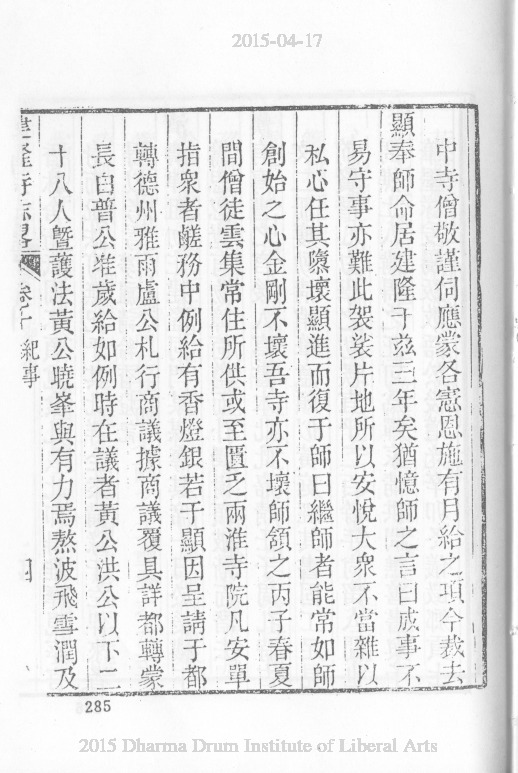 2015-04-17
中寺僧敬謹伺應蒙各憲恩施有月給之項今裁去
顯奉師命居建隆于茲三年矣猶憶師之言曰成事不
易守事亦難此袈裟片地所以安悅大衆不當雜以
私心任其隳壞顯進而復于師曰繼師者能常如師
創始之心金剛不壞吾寺亦不壞師頷之丙子春夏
間僧徒雲集常住所供或至匱乏兩淮寺院凡安單
指衆者鹾務中例給有香燈銀若干顯因呈請于都
轉德州雅雨盧公札行商議據商議覆具詳都轉蒙
長白普公准歲給如例時在議者黃公洪公以下二
十八人暨護法黃公曉峯與有力焉熬波飛雪潤及
建隆寺志畧 卷下 紀事 四
285
2015 Dharma Drum Institute of Liberal Arts